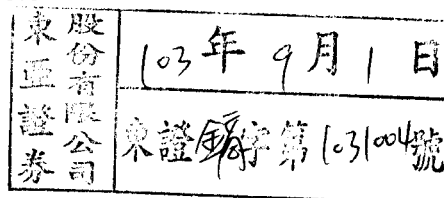 東亞證券
股份有限公司
103年9月1日
東證 字第1031004號